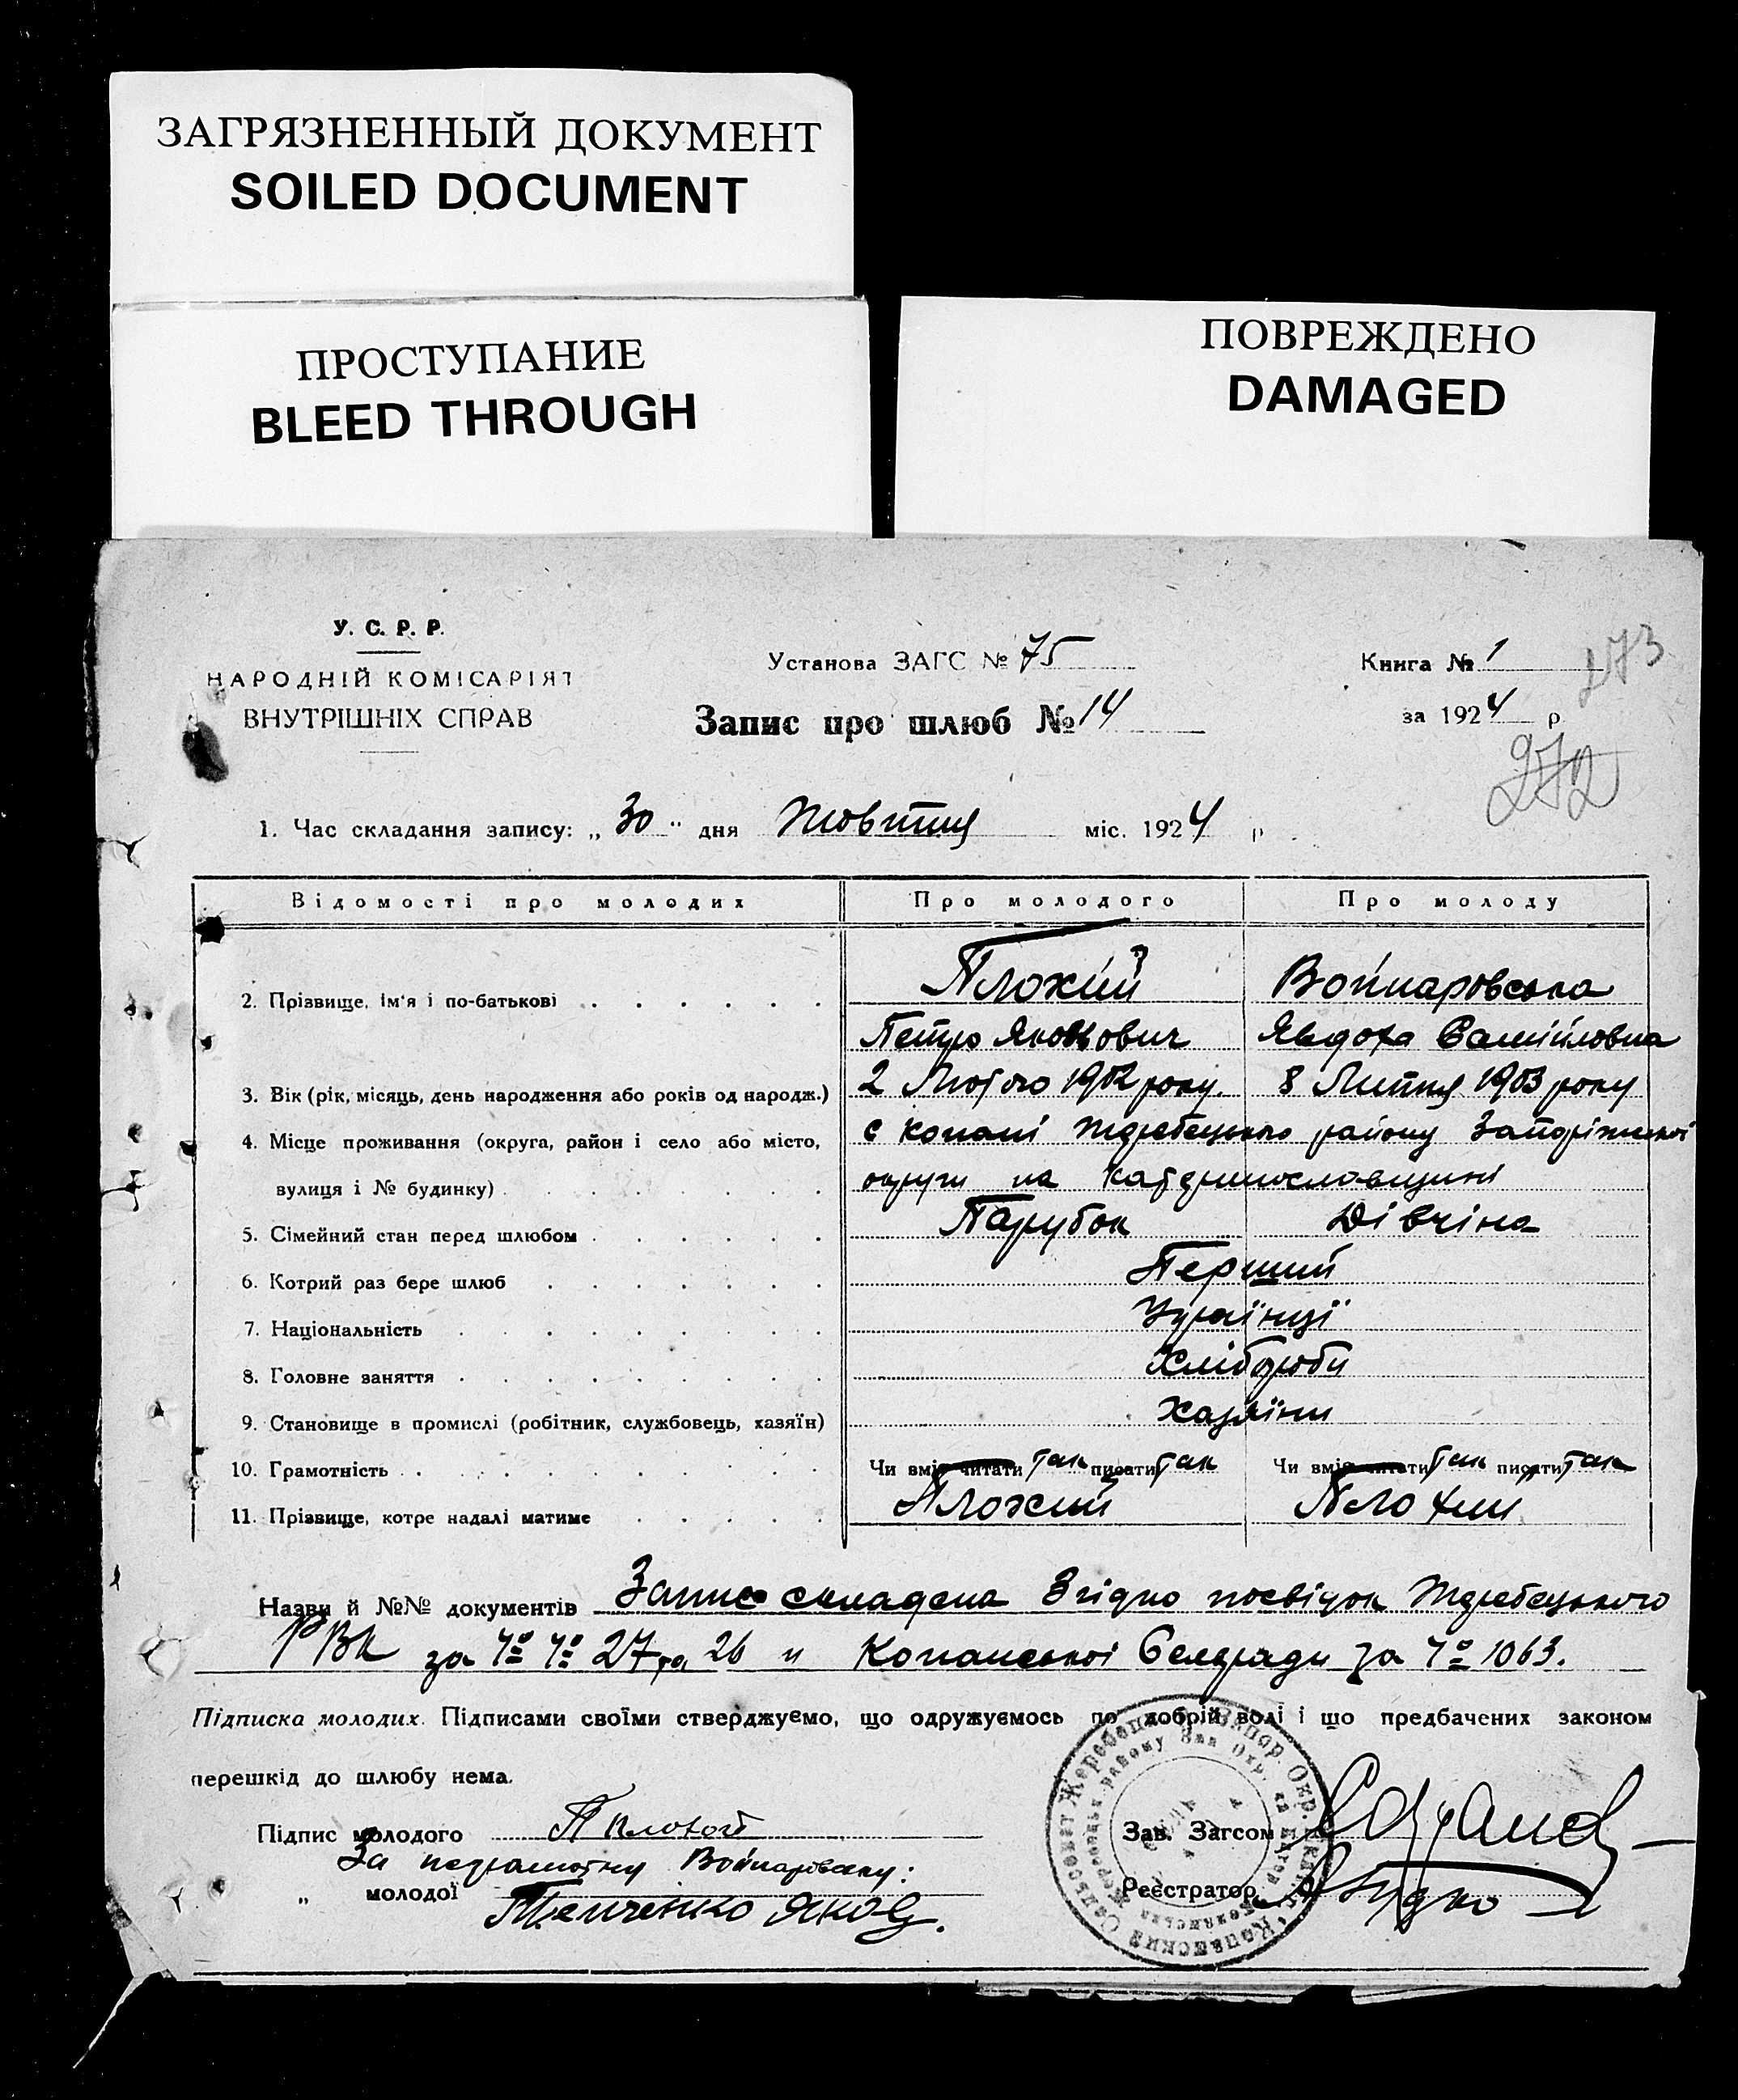 ЗАГРЯЗНЕННЫЙ ДОКУМЕНТ
SOILED DOCUMENT
ПРОСТУПАНИЕ
BLEED THROUGH
ПОВРЕЖДЕНО
DAMAGED
У. С. Р. Р.
НАРОДНІЙ КОМІСАРІЯТ
ВНУТРІШНІХ СПРАВ
Установа ЗАГС № 75
Запис про шлюб № 14
Книга № 1
273
за 1924 р
272
1. Час складання запису: „ 30 " дня Жовтня міс. 1924 р
Відомості про молодих Про молодого Про молоду
2. Прізвище, ім'я і по-батькові Плохий Войнаровська
Петро Яковович Явдоха Самійловна
3. Вік (рік, місяць, день народження або років од народж.) 2 Лютого 1902 року. 8 Липня 1903 року
4. Місце проживання (округа, район і село або місто, с Копані Жеребецького району Запоріжської
вулиця і № будинку) округи на Катеринославщині
5. Сімейний стан перед шлюбом Парубок Дівчіна
6. Котрий раз бере шлюб Перший
7. Національність Українці
8. Головне заняття Хлібороби
9. Становище в промислі (робітник, службовець, хазяїн) Хазяїни
10. Грамотність Чи вміє читати так писати так Чи вміє читати так писати так
11. Прізвище, котре надалі матиме Плохий Плохий
Назви й №№ документів Запис складена Згідно посвідок Жеребецького
РВК за № № 27 та 26 и Копанської Сельради за № 1063.
Підписка молодих. Підписами своїми стверджуємо, що одружуємось по добрій волі і що предбачених законом
перешкід до шлюбу нема.
Підпис молодого П Плохой
За неграмотну Войнаровску:
„ молодої Темченко Яков.
Зав. Загсом
Реєстратор